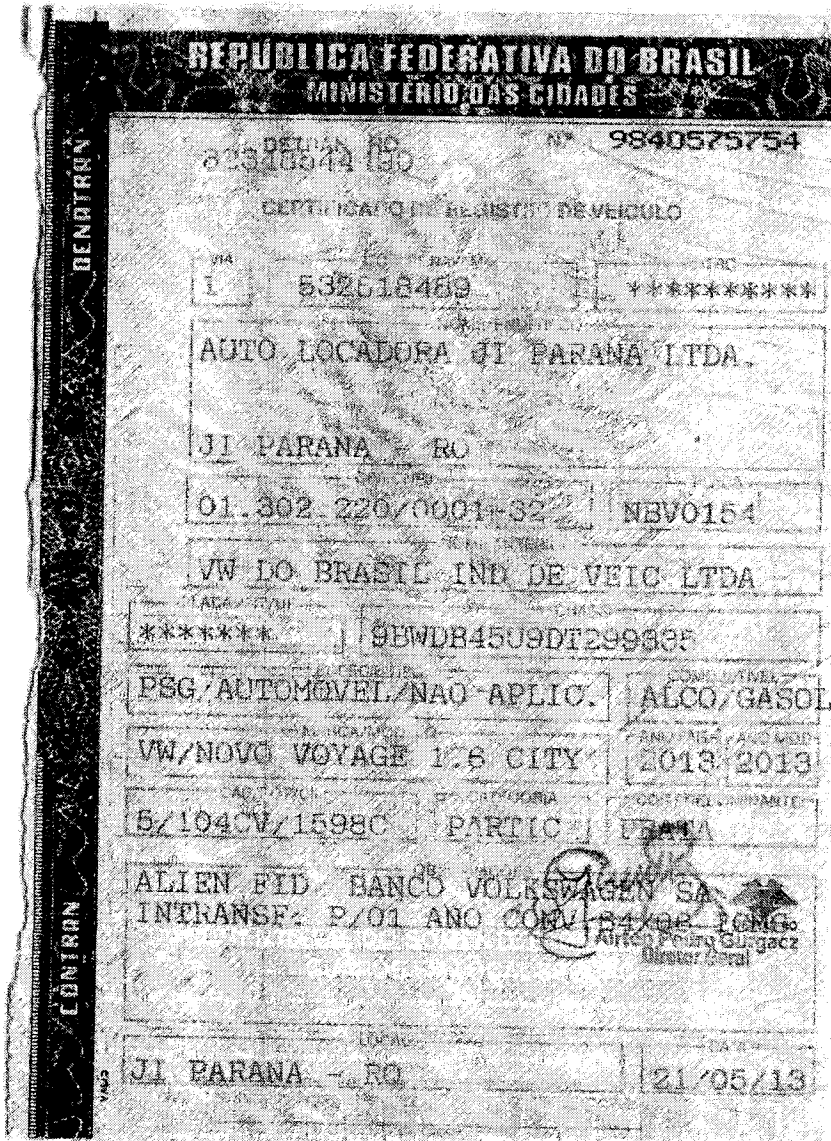 REPÚBLICA FEDERATIVA DO BRASIL
MINISTÉRIO DAS CIDADES
DETRAN RO Nº 9840575754
CERTIFICADO DE REGISTRO DE VEÍCULO
DENATRAN
VIA
1 **********
AUTO LOCADORA JI PARANA LTDA.
JI PARANA - RO
01.302.220/0001-32 NBV0154
VW DO BRASIL IND DE VEIC LTDA
******* 9BWDB45U9DT299335
PSG/AUTOMOVEL/NAO APLIC. ALCO/GASOL
VW/NOVO VOYAGE 1.6 CITY 2013 2013
CATEGORIA
5/104CV/1598C PARTIC PRATA
ALIEN FID BANCO VOLKSWAGEN SA
INTRANSF: P/01 ANO CONV
Airton Pedro Gurgacz
Diretor Geral
CONTRAN
LOCAL DATA
JI PARANA - RO 21/05/13